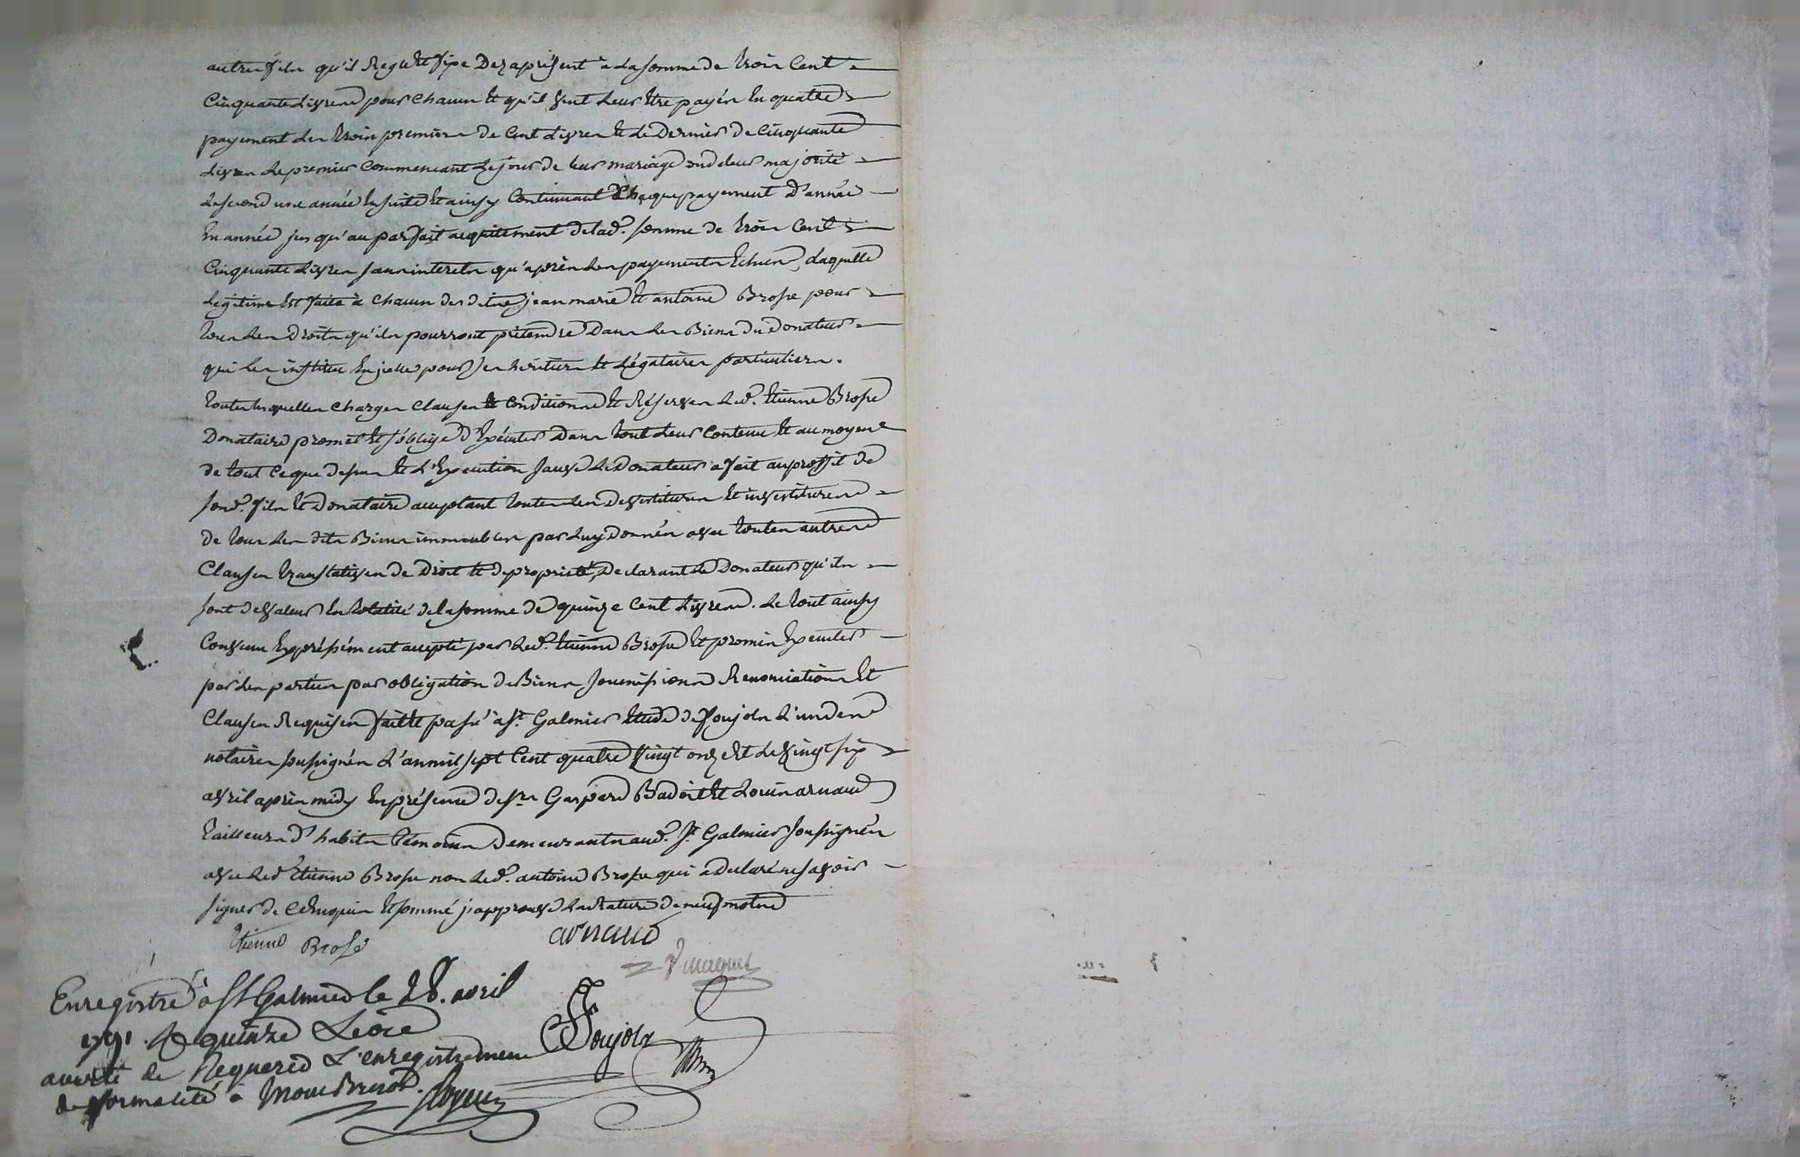 autres fils qu'il Regle et fixe Dez a présent à la somme de trois Cent
Cinquante Livres pour chacun et qu'il veut Leur être payés En quatre
payement les trois premiers de Cent Livres et le Dernier de Cinquante
Livres Le premier Commencant Le jour de leur mariage ou de leur majorité
Le second une année Ensuite et ainsy Continuant Chaque payement D'année
En année jusqu'au parfait acquitement de lad.e somme de trois Cent
Cinquante Livres sans interets qu'après Les payements Echus, Laquelle
Légitime Est faite à chacun desdits jean marie et antoine Brosse pour
tous Les Droits qu'ils pourront prétendre Dans Les Biens du Donateur
qui Les institue En jcelle pour ses heritiers et Légataires particuliers.
toutes lesquelles charges Clauses et Conditions et Réserves Led. Etienne Brosse
Donataire promet et s'oblige D'Exécuter Dans tout Leur Contenu Et au moyen
de tout Ce que dessus et L'Execution sauve Le Donateur a fait au proffit de
sond. fils et Donataire acceptant toutes Les Devestitures Et investitures
de tous Les dits Biens immeubles par Luy Donnés avec toutes autres
Clauses translatives de Droit et de propriété, Declarant Le Donateur qu'ils
sont de valeur En totalité de la somme de quinze Cent Livres. Le tout ainsy
Convenu Expréssément accepté par Led. Etienne Brosse Et promis Executer
par Les parties par obligation de Biens soumissions Renonciations Et
Clauses Requises fait et passé à St Galmier Etude de Poujols L'un des
notaires soussignés L'an mil sept Cent quatre vingt onze Et Le vingt six
avril après midy En présence de srs Gaspard Badoil Et Louis arnaud
tailleurs D'habits temoins Demeurants aud. St. Galmier soussignés
avec Led. Etienne Brosse non Led. antoine Brosse qui a Déclaré ne savoir
signer de Ce Enquis Et sommé j'approuve La rature de neuf mots
Etienne Brosse arnaud
Enregistré à St Galmier le 28. avril
1791. R quinze Livres
averti de Requerir L'enregistrement Poujols
de formalité à Montbrison.